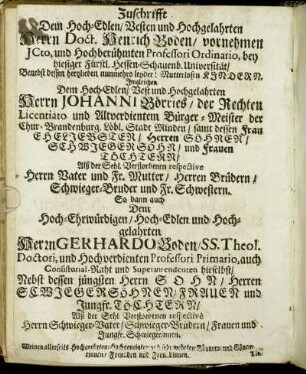 Zuschrifft
Dem Hoch-Edlen/ Vesten und Hochgelahrten
Herrn Doct. Henrich Boden/ vornehmen
JCto, und Hochberühmten Professori Ordinario, bey
hiesiger Fürstl. Hessen-Schauenb. Universität/
Benebst dessen hertzlieben nunmehro leyder! Mutterlosen KINDERN.
Ingleichen
Dem Hoch-Edlen/ Vest und Hochgelahrten
Herrn JOHANNI Börries/ der Rechten
Licentiato und Allverdientem Bürger-Meister der
Chur-Brandenburg. Löbl. Stadt Münden/ samt dessen Frau
EHELIEBSTEN/ Herren SÖHNEN/
SCHWIEGERSÖHN/ und Frauen
TÖCHTERN/
Alß der Sehl. Verstorbenen respective
Herrn Vater und Fr. Mutter/ Herren Brüdern/
Schwieger-Bruder und Fr. Schwestern.
So dann auch
Dem
Hoch-Ehrwürdigen/ Hoch-Edlen und Hoch-
gelahrten
Herrn GERHARDO Boden/ SS. Theol.
Doctori, und Hochverdienten Professori Primario, auch
Consistorial-Raht und Superintendenten hieselbst/
Nebst dessen jüngsten Herrn SOHN/ Herren
SCHWIEGERSÖHNEN/ FRAUEN und
Jungfr. TÖCHTERN/
Alß der Sehl. Verstorbenen respective
Herrn Schwieger-Vater/ Schwieger-Brüdern/ Frauen und
Jungfr. Schwiegerinnen.
Meinen allerseits Hochgeehrten